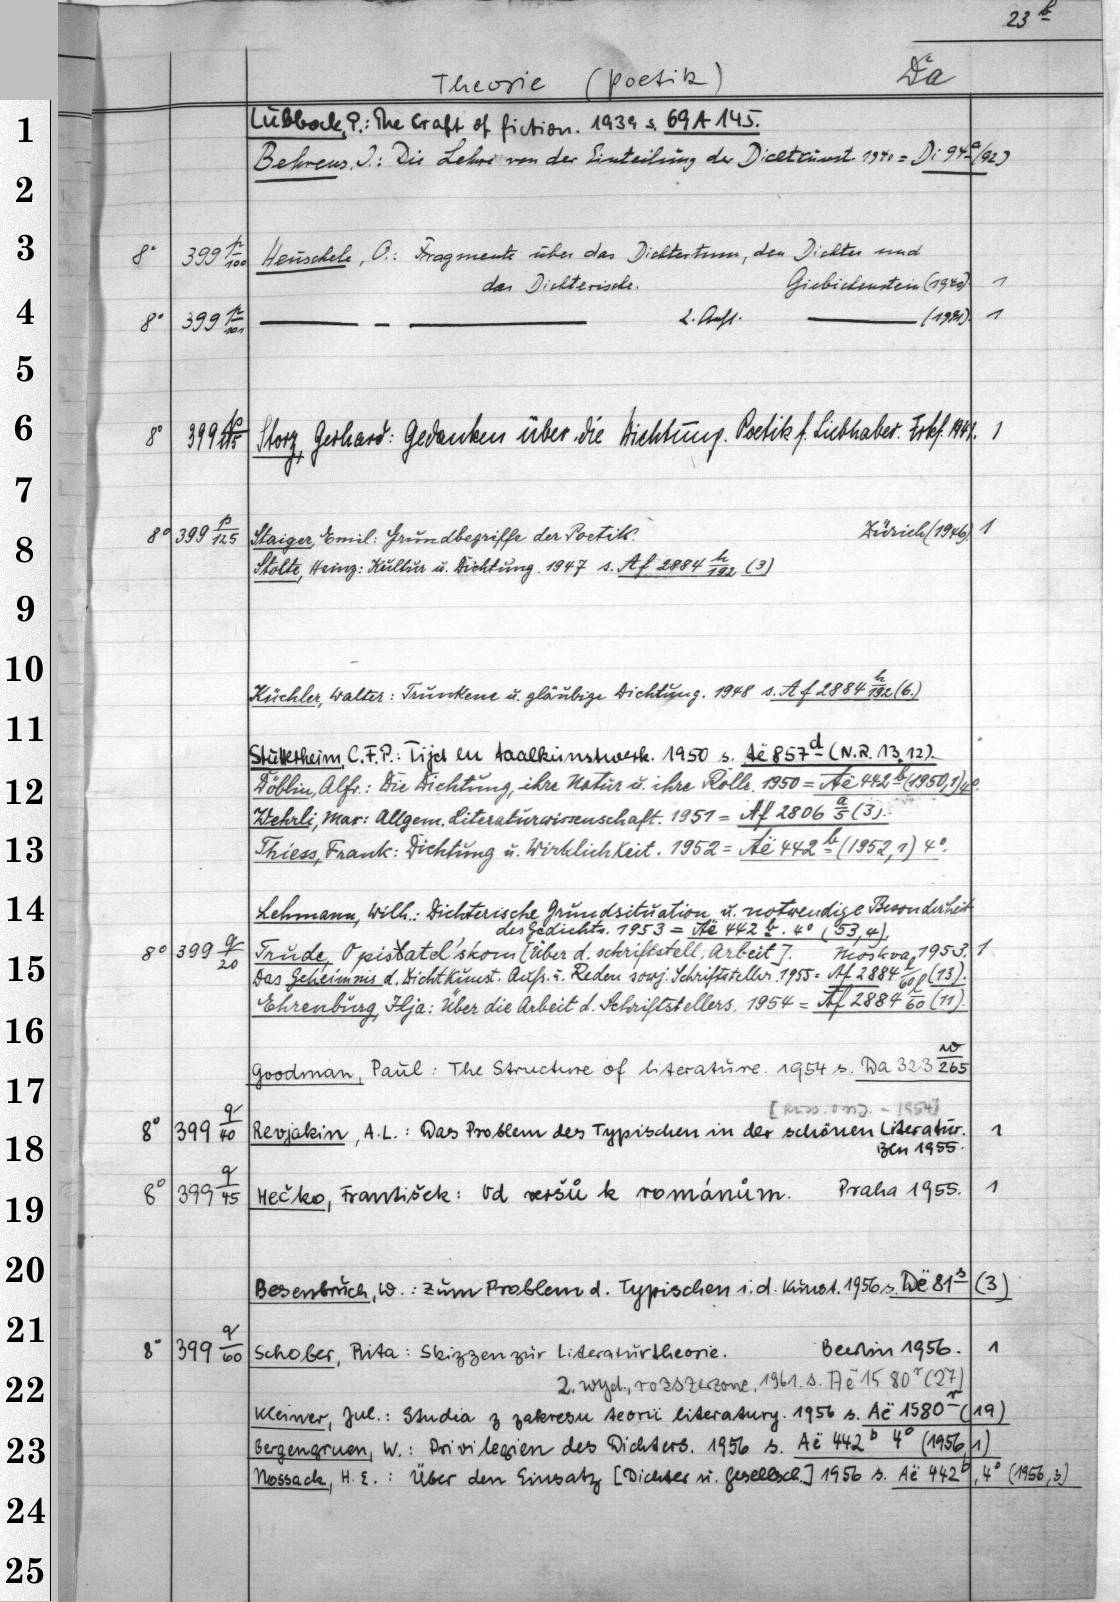 23 b
Theorie (Poetik) Da
1 Lubbock, P.: The Craft of fiction. 1939 s. 69 A 145.
Behrens, I.: Die Lehre von der Einteilung der Dichtkunst 1940 = Di 94 a (92)
2
3 8° 399 p/100 Heuschele, O.: Fragmente über das Dichtertum, den Dichter und
das Dichterische. Giebichenstein (1940). 1
4 8° 399 p/101 — - — 2. Aufl. — 1
5
6 8° 399 p/115 Storz, Gerhard: Gedanken über die Dichtung. Poetik f. Liebhaber. Frkf. 1941. 1
7
8 8° 399 p/125 Staiger, Emil: Grundbegriffe der Poetik. Zürich (1946) 1
Stolte, Heinz: Kultur u. Dichtung. 1947 s. Af 2884 h/192 (3)
9
10
Küchler, Walter: Trunkene u. gläubige Dichtung. 1948 s. Af 2884 h/192 (6.)
11
Stutterheim, C.F.P.: Tijd en taalkunstwerk. 1950 s. Aë 857 d (N.R. 13,12).
12 Döblin, Alfr.: Die Dichtung, ihre Natur u. ihre Rolle. 1950 = Aë 442 b (1950,1) 4°.
Wehrli, Max: Allgem. Literaturwissenschaft. 1951 = Af 2806 a/5 (3).
13 Thiess, Frank: Dichtung u. Wirklichkeit. 1952 = Aë 442 b (1952,1) 4°.
14 Lehmann, Wilh.: Dichterische Grundsituation u. notwendige Besonderheit
des Gedichts. 1953 = Aë 442 b. 4° (53,4).
15 8° 399 q/20 Trude, O pisatel'skom [Über d. schriftstell. Arbeit]. Moskva, 1953. 1
Das Geheimnis d. Dichtkunst. Aufs. u. Reden sowj. Schriftsteller. 1955 = Af 2884 l/60 (13).
Ehrenburg, Ilja: Über die Arbeit d. Schriftstellers. 1954 = Af 2884 l/60 (11).
16
Goodman, Paul: The Structure of literature. 1954 s. Da 323 w/265
17
[Russ. Orig. - 1954]
18 8° 399 q/40 Revjakin, A.L.: Das Problem des Typischen in der schönen Literatur. 1
Bln 1955.
19 8° 399 q/45 Hečko, František: Od veršů k románům. Praha 1955. 1
20
Besenbruch, W.: Zum Problem d. Typischen i. d. Kunst. 1956 s. Dë 81 s (3)
21 8° 399 q/60 Schober, Rita: Skizzen zur Literaturtheorie. Berlin 1956. 1
22 2. wyd., rozszerzone, 1961. s. Aë 1580 r (27)
Kleiner, Jul.: Studia z zakresu teorii literatury. 1956 s. Aë 1580 r (19)
23 Bergengruen, W.: Privilegien des Dichters. 1956 s. Aë 442 b 4° (1956,1)
Nossack, H. E.: Über den Einsatz [Dichter u. Gesellsch.] 1956 s. Aë 442 b, 4° (1956,3)
24
25